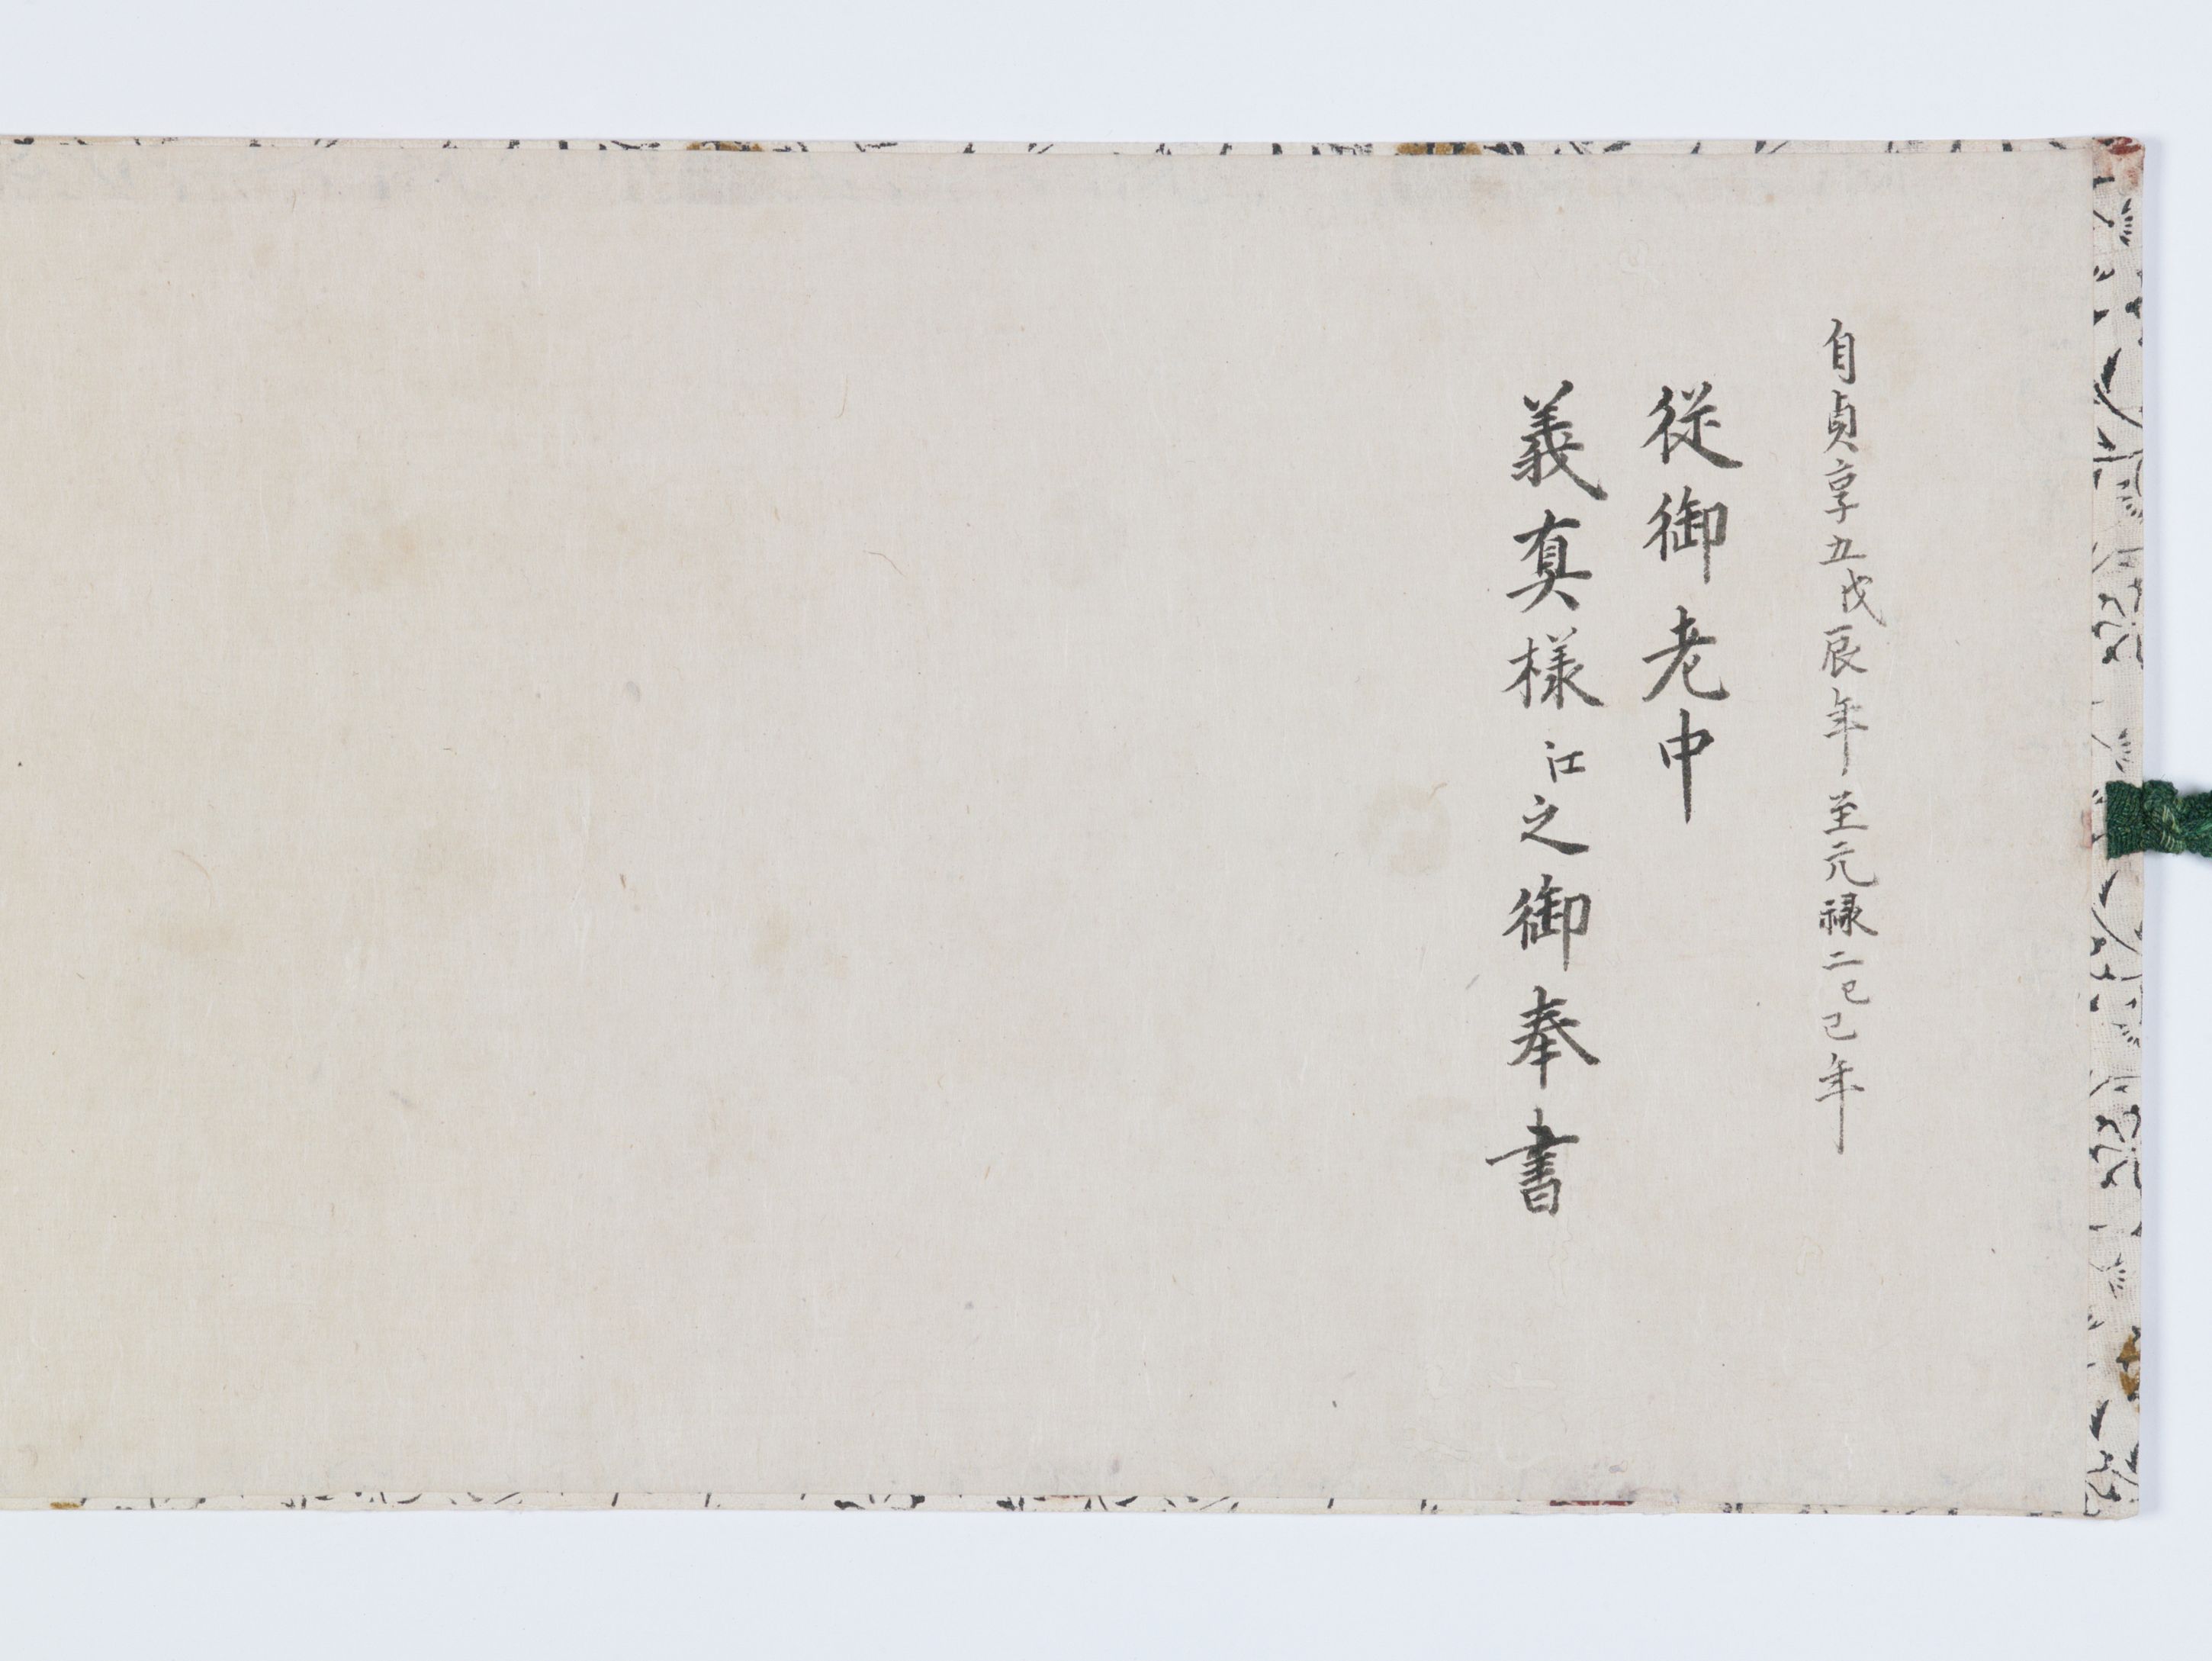 自貞享五戊辰年至元禄二己巳年
従御老中
義真様江之御奉書